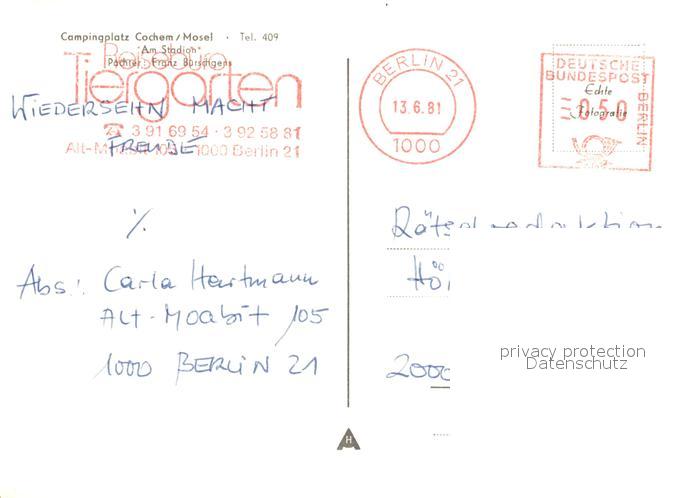 Campingplatz Cochem/Mosel · Tel. 409
"Am Stadion"
Pächter: Franz Bürschgens
Reisebüro
Tiergarten
WIEDERSEHN MACHT
FREUDE
☎ 3 91 69 54 · 3 92 58 81
Alt-Moabit 105 · 1000 Berlin 21
BERLIN 21
13.6.81
1000
DEUTSCHE
BUNDESPOST
BERLIN
Echte
Fotografie
050
%
Abs.: Carla Hartmann
Alt-Moabit 105
1000 BERLIN 21
Rätselredaktion
Hö
2000
H
privacy protection
Datenschutz